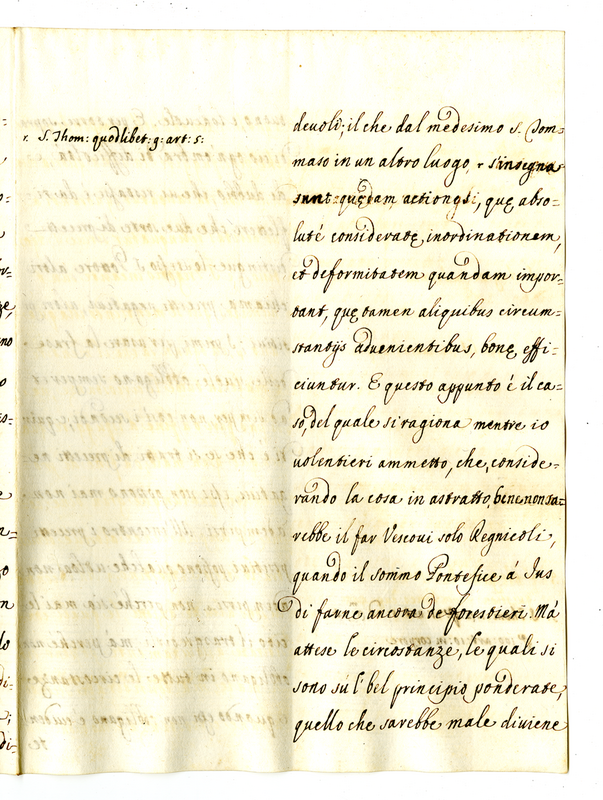 r. S. Thom: quodlibet: 9: art: 5:
devoli; il che dal medesimo S. Tom=
maso in un altro luogo, r s'insegna
sunt quędam actiones, quę abso=
luté consideratę inordinationem,
et deformitatem quandam impor=
tant, quę tamen aliquibus circum=
stantijs advenientibus, bonę effi=
ciuntur. E questo appunto é il ca=
so, del quale si ragiona mentre io
volentieri ammetto, che, conside=
rando la cosa in astratto, bene non sa=
rebbe il far Vescoui solo Regnicoli,
quando il sommo Pontefice á Jus
di farne ancora de forestieri. Má
attese le circostanze, le quali si
sono sú l' bel principio ponderate,
quello che sarebbe male diviene